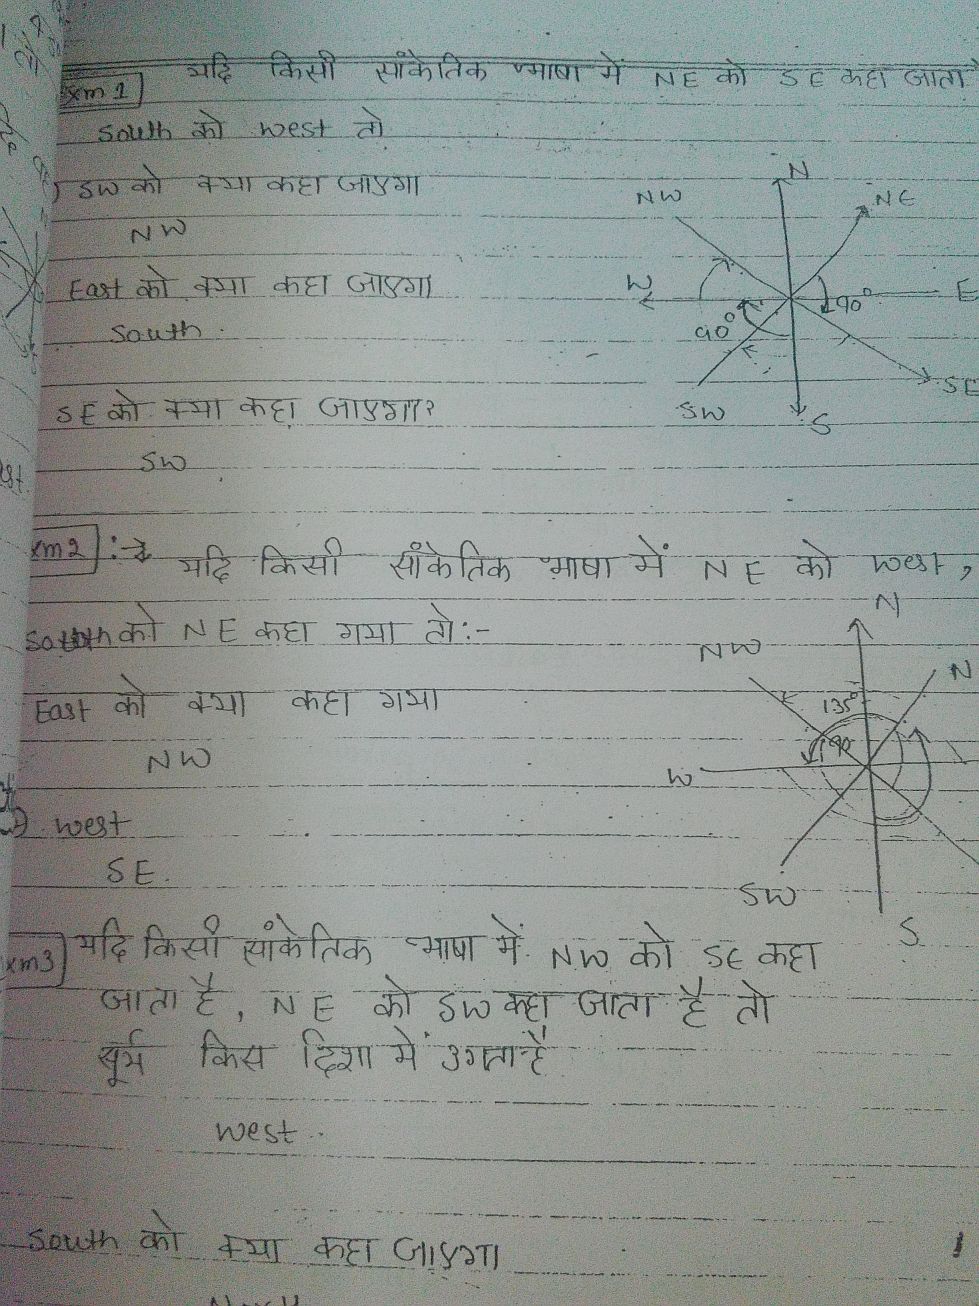 यदि किसी सांकेतिक भाषा में NE को SE कहा जाता है
xm 1
South को west तो
SW को क्या कहा जाएगा
NW
East को क्या कहा जाएगा
South
SE को क्या कहा जाएगा?
SW
N
NW
NE
W
E
90°
90°
SW
S
SE
xm 2 :→ यदि किसी सांकेतिक भाषा में NE को west,
South को NE कहा गया तो:-
East को क्या कहा गया
NW
west
SE.
N
NW
N
135°
90
W
SW
S
xm 3 यदि किसी सांकेतिक भाषा में NW को SE कहा
जाता है, NE को SW कहा जाता है तो
सूर्य किस दिशा में उगता है
west
South को क्या कहा जाएगा